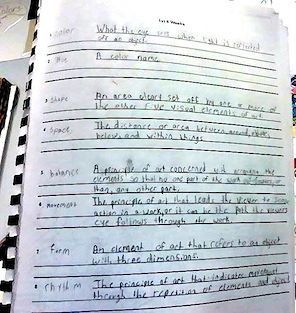 Art Vocab
1 Color What the eye sees when light is reflected
off an object.
2 Hue A color name
3 Shape An area clearly set off by one or more of
the other five visual elements of art.
4 Space The distance or area between, around,
below, and within things
5 balance A principle of art concerned with arranging the
elements so that no one part of the work
than any other part.
6 movement The principle of art that leads the viewer to
action in a work, or it can be the path the viewers
eye follows through the work
7 Form An element of art that refers to an object
with three dimensions.
8 rhythm The principle of art that indicates movement
through the repetition of elements and